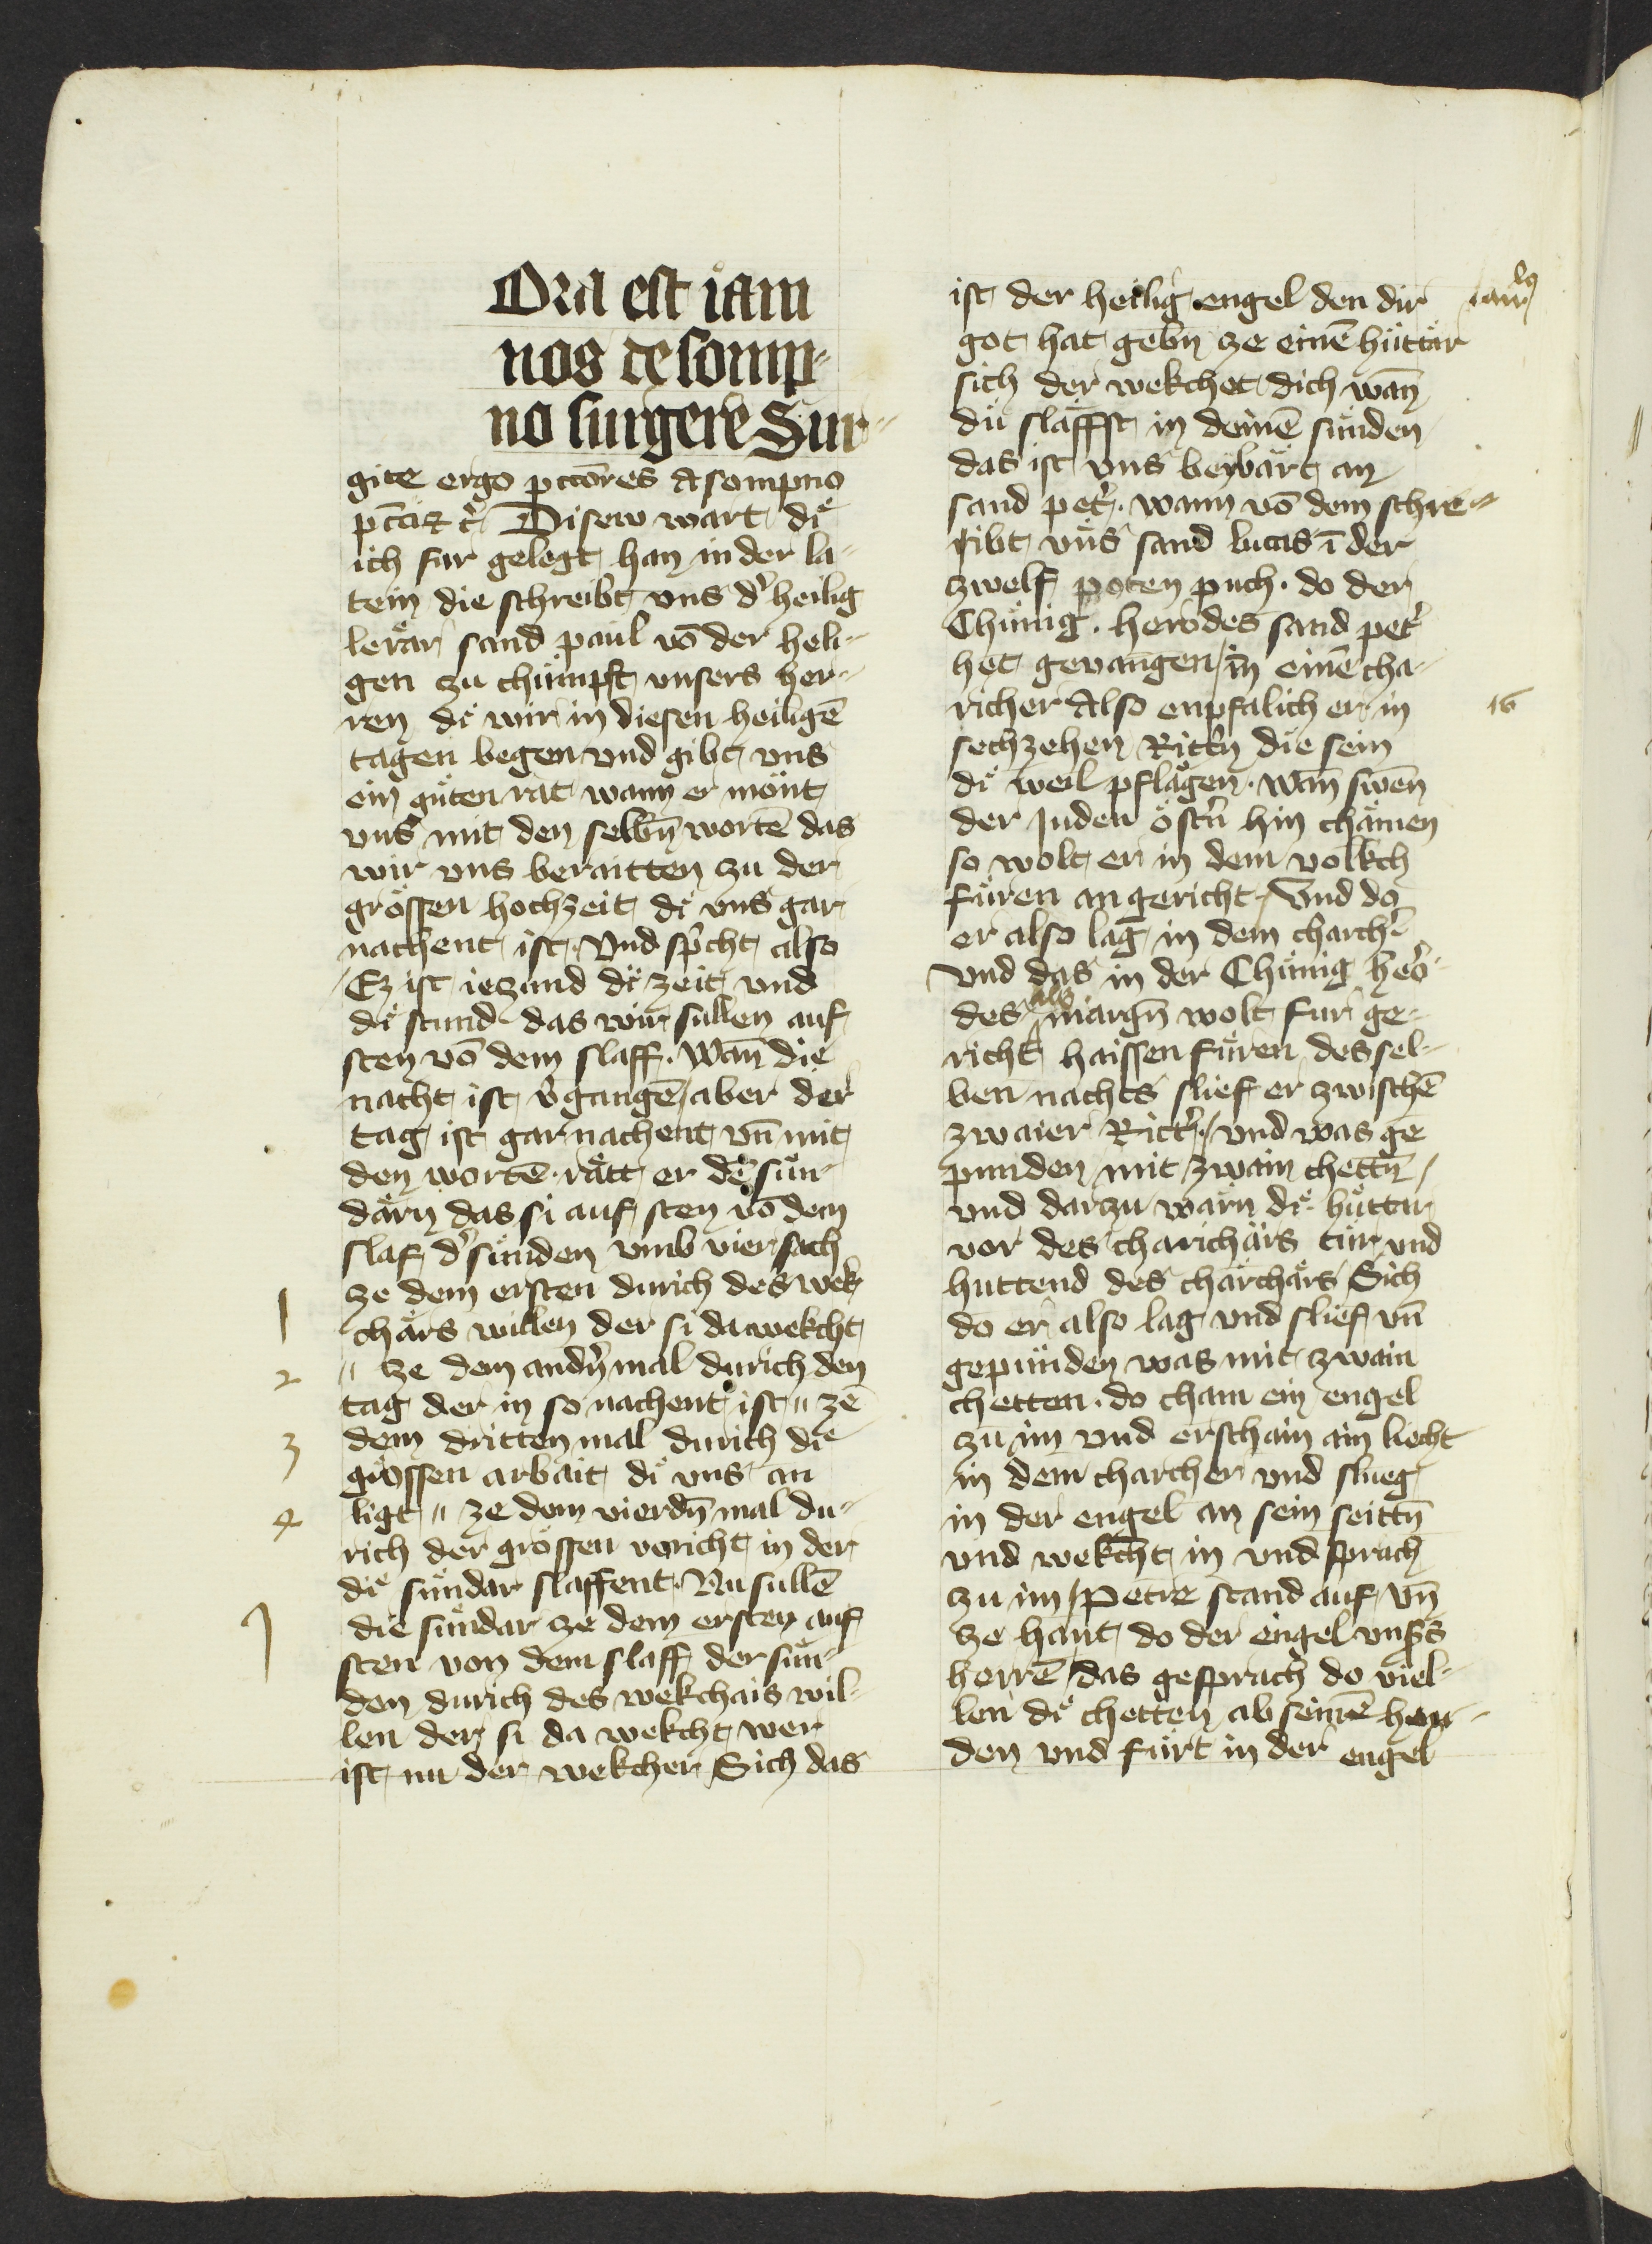 Ora est iam
nos de somp-
no surgere Sur-
gite ergo pctōres a sompno
Disew wart di
ich fur gelegt han in der la-
tein die schreibt vns d' heilig
lerär sand paul vō der heli-
gen zu chumpft vnsers her-
ren di wir in diesen heiligē
tagen begen vnd gibt vns
ein guten rat wann er mont
vns mit den selbn̄ wortē das
wir vns beraitten zu der
grössen hochzeit di vns gar
nachent ist. Vnd sp'cht also
Ez ist iezand di zeit vnd
di stund das wir sullen auf
sten vō dem slaff. Wan̄ die
nacht ist v'gangē / aber der
tag ist gar nachent vn̄ mit
den wortē rätt er dē sun-
därn das si auf sten vō dem
slaf d' sunden vmb vier sach
1 ze dem ersten durich des wek
chärs willen der si da wekcht
2 " ze dem andn̄ mal durich den
tag der in so nachent ist " ze
3 dem dritten mal durich die
grössen arbait di vns an
4 ligt " ze dem vierdn̄ mal du-
rich der grossen voricht in der
di sundar slaffent. Nu sullē
1 die sundar ze dem ersten auf
sten von dem slaff der sun-
den durich des wekchars wil-
len der si da wekcht wer
ist nu der wekcher Sich das
ist der heilig engel den dir
got hat gebn̄ ze einē hüttär
sich der wekchet dich wan̄
du slaffst in deinē sunden
das ist vns bewärt an
sand pet'. wann vō dem schre-
ibt vns sand lucas ī der
zwelf poten puch. do der
Chünig. herodes sand pet'
het gevangen / in einē cha-
richer Also enpfalich er in 16
sechzehen Rittn̄ die sein
di weil pflägen. wan̄ swen̄
der Juden östn̄ hin chämen
so wolt er in dem volkch
füren an gericht / Vnd do
er also lag in dem charch'
vnd das in der Chünig hero-
des als margn̄ wolt fur ge-
richt haissen füren des sel-
ben nachts slief er zwischē
zwaier Ritt' / vnd was ge
punden mit zwain chettn̄ /
vnd darzu wärn di hüttär
vor des charichärs tür vnd
huttend des charchärs Sich
do er also lag vnd slief vn̄
gepunden was mit zwain
chetten. do cham ein engel
zu im vnd erschain ain liecht
in dem charcher vnd slueg
in der engel an sein seittn̄
vnd wekcht in vnd sprach
zu im / Petre stand auf / vn̄
ze hant do der engel vns's
herrē / das gesprach do viel-
len di chetten ab seinē hen-
den vnd fürt in der engel